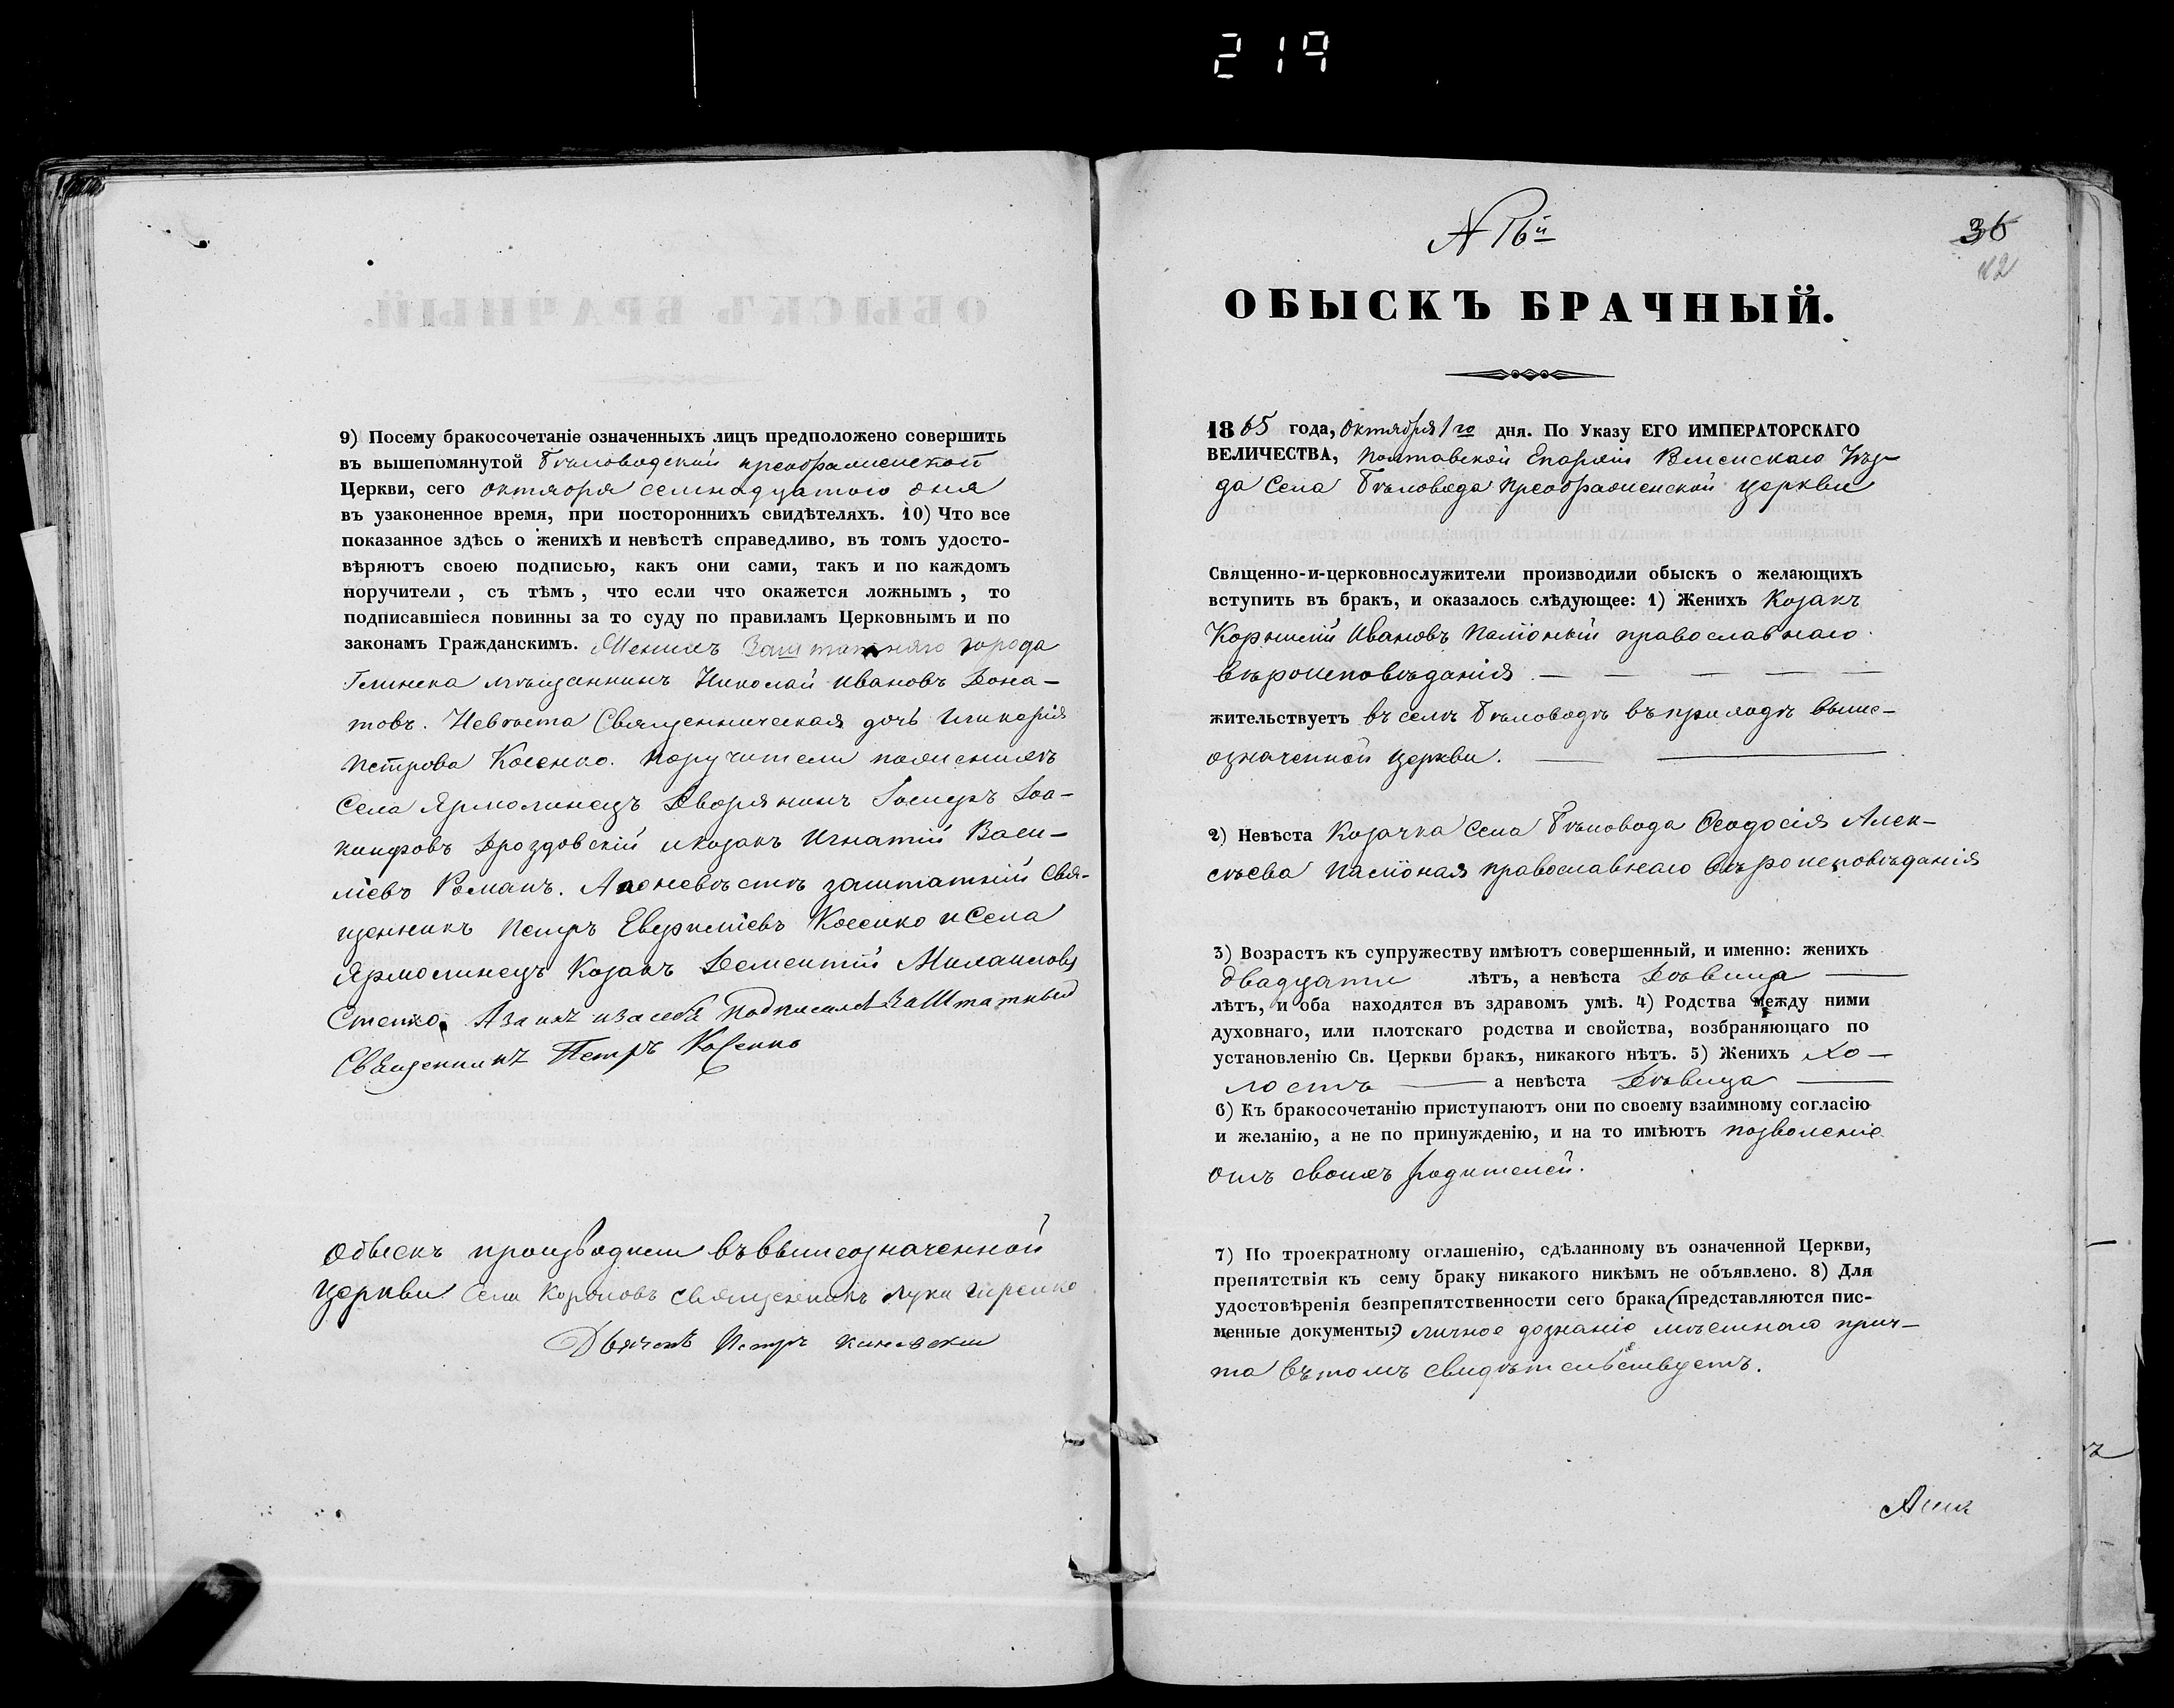 219
9) Посему бракосочетаніе означенныхъ лицъ предположено совершить
въ вышепомянутой Бѣловодской преображенской
Церкви, сего октября семнадцатого дня
въ узаконенное время, при постороннихъ свидѣтеляхъ. 10) Что все
показанное здѣсь о женихѣ и невѣстѣ справедливо, въ томъ удосто-
вѣряютъ своею подписью, какъ они сами, такъ и по каждомъ
поручители, съ тѣмъ, что если что окажется ложнымъ, то
подписавшіеся повинны за то суду по правиламъ Церковнымъ и по
законамъ Гражданскимъ. Женихъ Заштатнаго города
Глинска мѣщанинъ Николай Ивановъ Дона-
товъ. Невѣста Священническая дочь Гликерія
Петрова Косенко. Поручители по женихѣ
Села Ярмолинецъ Дворянинъ Іосифъ Іоа-
кифовъ Дроздовскій и козакъ Игнатій Васи-
ліевъ Романъ. А по невѣстѣ заштатній Свя-
щенникъ Петръ Евфиміевъ Косенко и Села
Ярмолинецъ Козакъ Дементій Михаиловъ
Стецко. А за ихъ и за себя Подписался Заштатный
Священникъ Петръ Косенко
Обыскъ производили въ вышеозначенной
церкви Священникъ Лука
Дьячекъ Петръ
N 16й
36
42
ОБЫСКЪ БРАЧНЫЙ.
1865 года, Октября 1го дня. По Указу ЕГО ИМПЕРАТОРСКАГО
ВЕЛИЧЕСТВА, Полтавской Епархіи Роменскаго Уѣз-
да Села Бѣловода Преображенской церкви
Священно-и-церковнослужители производили обыскъ о желающихъ
вступить въ бракъ, и оказалось слѣдующее: 1) Женихъ Козакъ
Корнилій Ивановъ православнаго
вѣроисповѣданія
жительствуетъ въ селѣ Бѣловодѣ въ приходѣ выше-
означенной церкви.
2) Невѣста Козачка Села Бѣловода Ѳеодосія Алек-
сѣева православнаго вѣроисповѣданія
3) Возрастъ къ супружеству имѣютъ совершенный, и именно: женихъ
двадцати лѣтъ, а невѣста Дѣвица
лѣтъ, и оба находятся въ здравомъ умѣ. 4) Родства между ними
духовнаго, или плотскаго родства и свойства, возбраняющаго по
установленію Св. Церкви бракъ, никакого нѣтъ. 5) Женихъ хо-
лостъ а невѣста Дѣвица
6) Къ бракосочетанію приступаютъ они по своему взаимному согласію
и желанію, а не по принужденію, и на то имѣютъ позволеніе
отъ своихъ родителей.
7) По троекратному оглашенію, сдѣланному въ означенной Церкви,
препятствія къ сему браку никакого никѣмъ не объявлено. 8) Для
удостовѣренія безпрепятственности сего брака (представляются пис-
менные документы:) личное дознаніе мѣстнаго прич-
та въ томъ свидѣтельствуетъ.